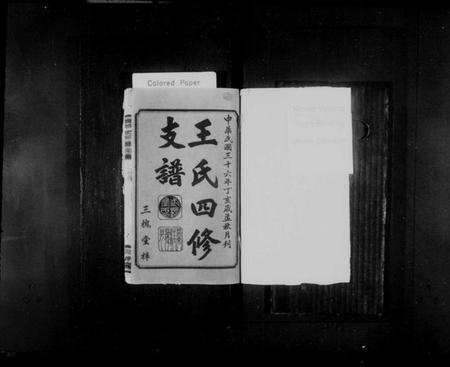 Colored Paper
中華民國三十六年丁亥歲孟秋月刊
王氏四修
支譜
三槐堂梓